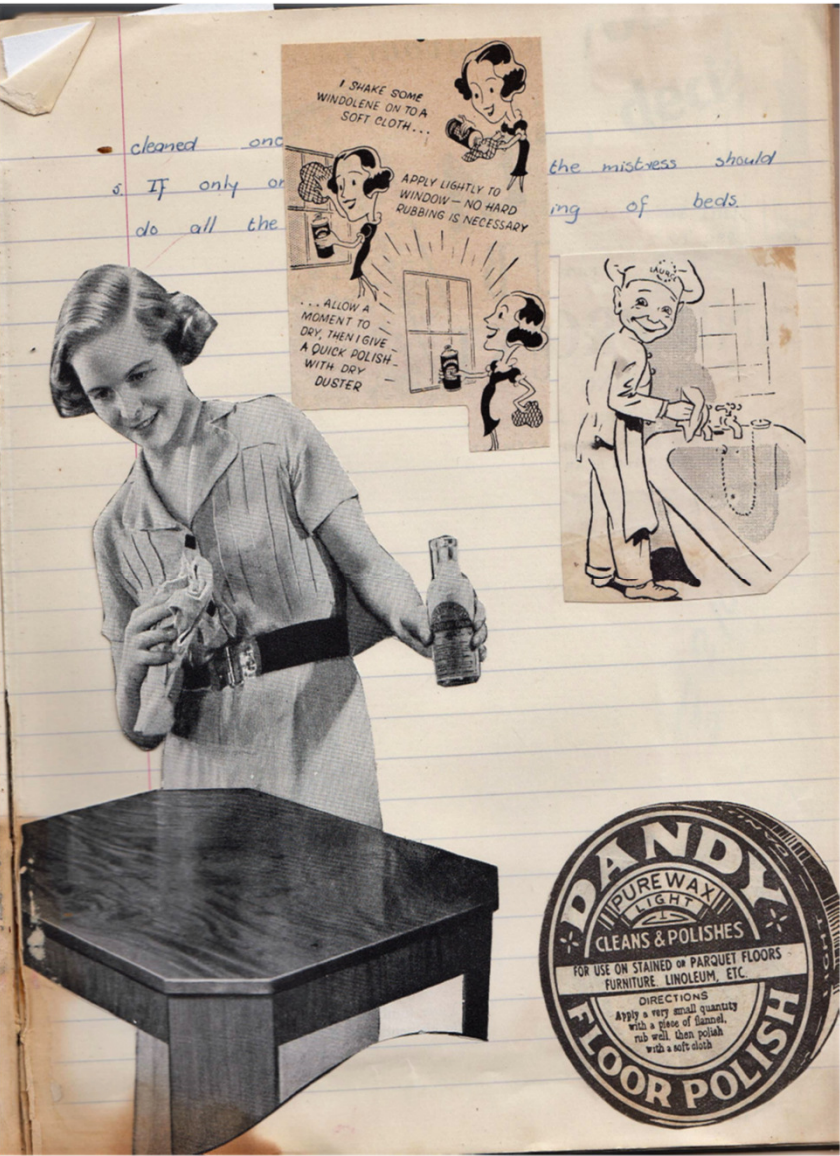 cleaned
the mistress should
5. If only
ing of beds.
do all the
I SHAKE SOME
WINDOLENE ON TO A
SOFT CLOTH...
APPLY LIGHTLY TO
WINDOW — NO HARD
RUBBING IS NECESSARY
...ALLOW A
MOMENT TO
DRY, THEN I GIVE
A QUICK POLISH
WITH DRY
DUSTER
DANDY
PURE WAX
LIGHT
CLEANS & POLISHES
FOR USE ON STAINED OR PARQUET FLOORS
FURNITURE. LINOLEUM, ETC.
DIRECTIONS
Apply a very small quantity
with a piece of flannel,
rub well, then polish
with a soft cloth
FLOOR POLISH